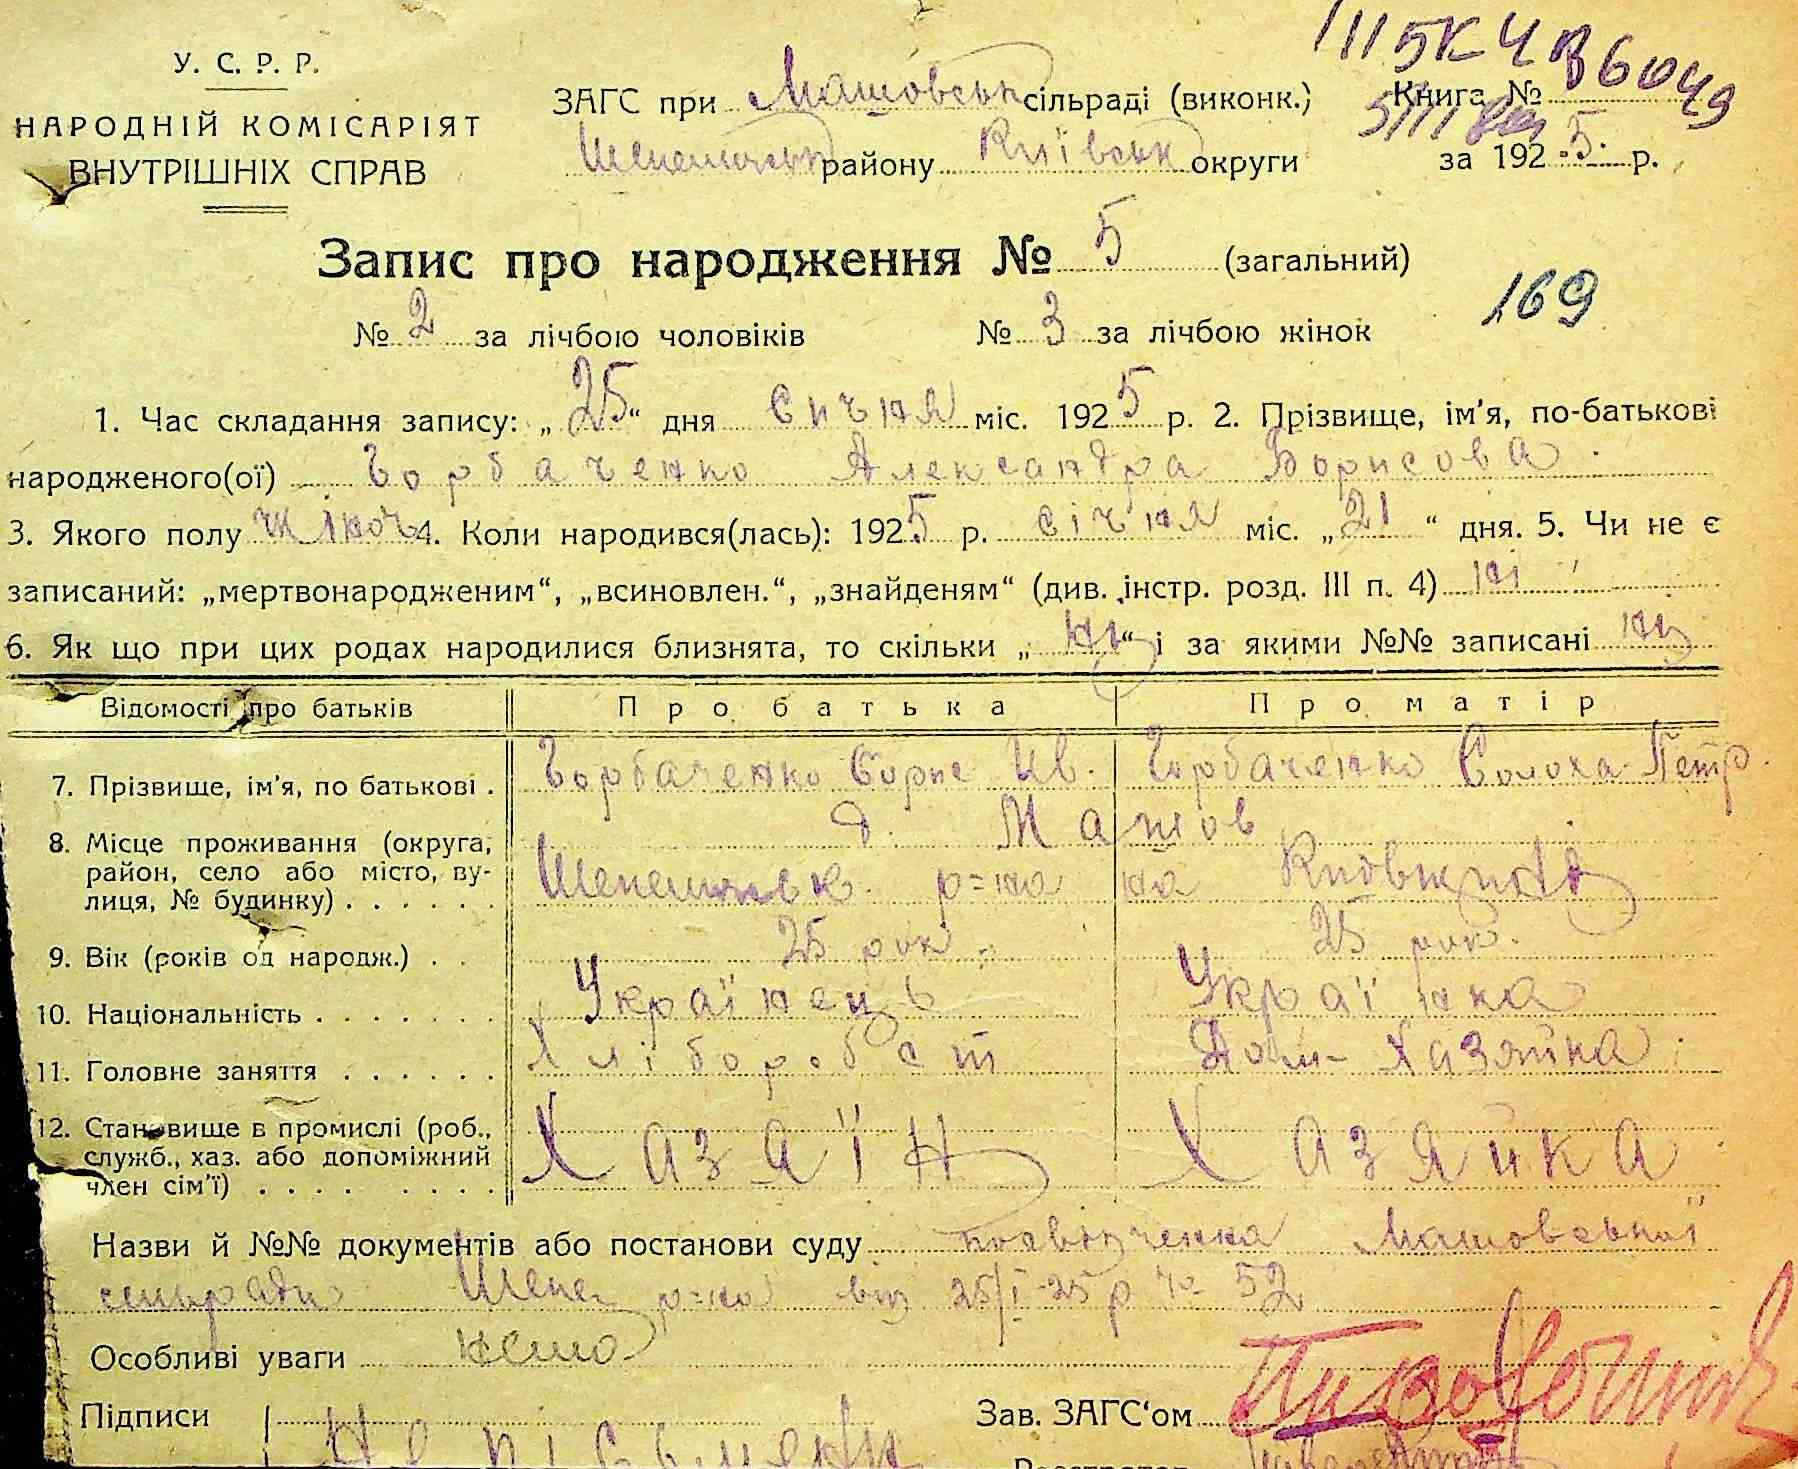 У. С. Р. Р.
НАРОДНІЙ КОМІСАРІЯТ
ВНУТРІШНІХ СПРАВ
ЗАГС при Машовськ сільраді (виконк.)
району Київськ округи
Книга №
за 1925 р.
Запис про народження № 5 (загальний)
№ 2 за лічбою чоловіків № 3 за лічбою жінок
169
1. Час складання запису: „25“ дня сичня міс. 1925 р. 2. Прізвище, ім'я, по-батькові
народженого(ої) Горбаченко Александра Борисова
3. Якого полу жіноч 4. Коли народився(лась): 1925 р. січня міс. „21“ дня. 5. Чи не є
записаний: „мертвонародженим“, „всиновлен.“, „знайденям“ (див. інстр. розд. III п. 4) ні
6. Як що при цих родах народилися близнята, то скільки „ “ і за якими №№ записані
Відомості про батьків Про батька Про матір
7. Прізвище, ім'я, по батькові . Горбаченко Борис Ив. Горбаченко Солоха Петр.
8. Місце проживання (округа, район, село або місто, вулиця, № будинку) . . . . . . д. Машов
р=на на
9. Вік (років од народж.) . . 25 рок. 25 рок.
10. Національність . . . . . . . Українець Українка
11. Головне заняття . . . . . . Хлібороб ст Дом-Хазяйка
12. Становище в промислі (роб., служб., хаз. або допоміжний член сім'ї) . . . . . . . . Хазяїн Хазяйка
Назви й №№ документів або постанови суду Машовської
сильради Шепел р=на від 25/I-25р № 52
Особливі уваги нема
Підписи Неписьменн Зав. ЗАГС'ом
Реєстратор